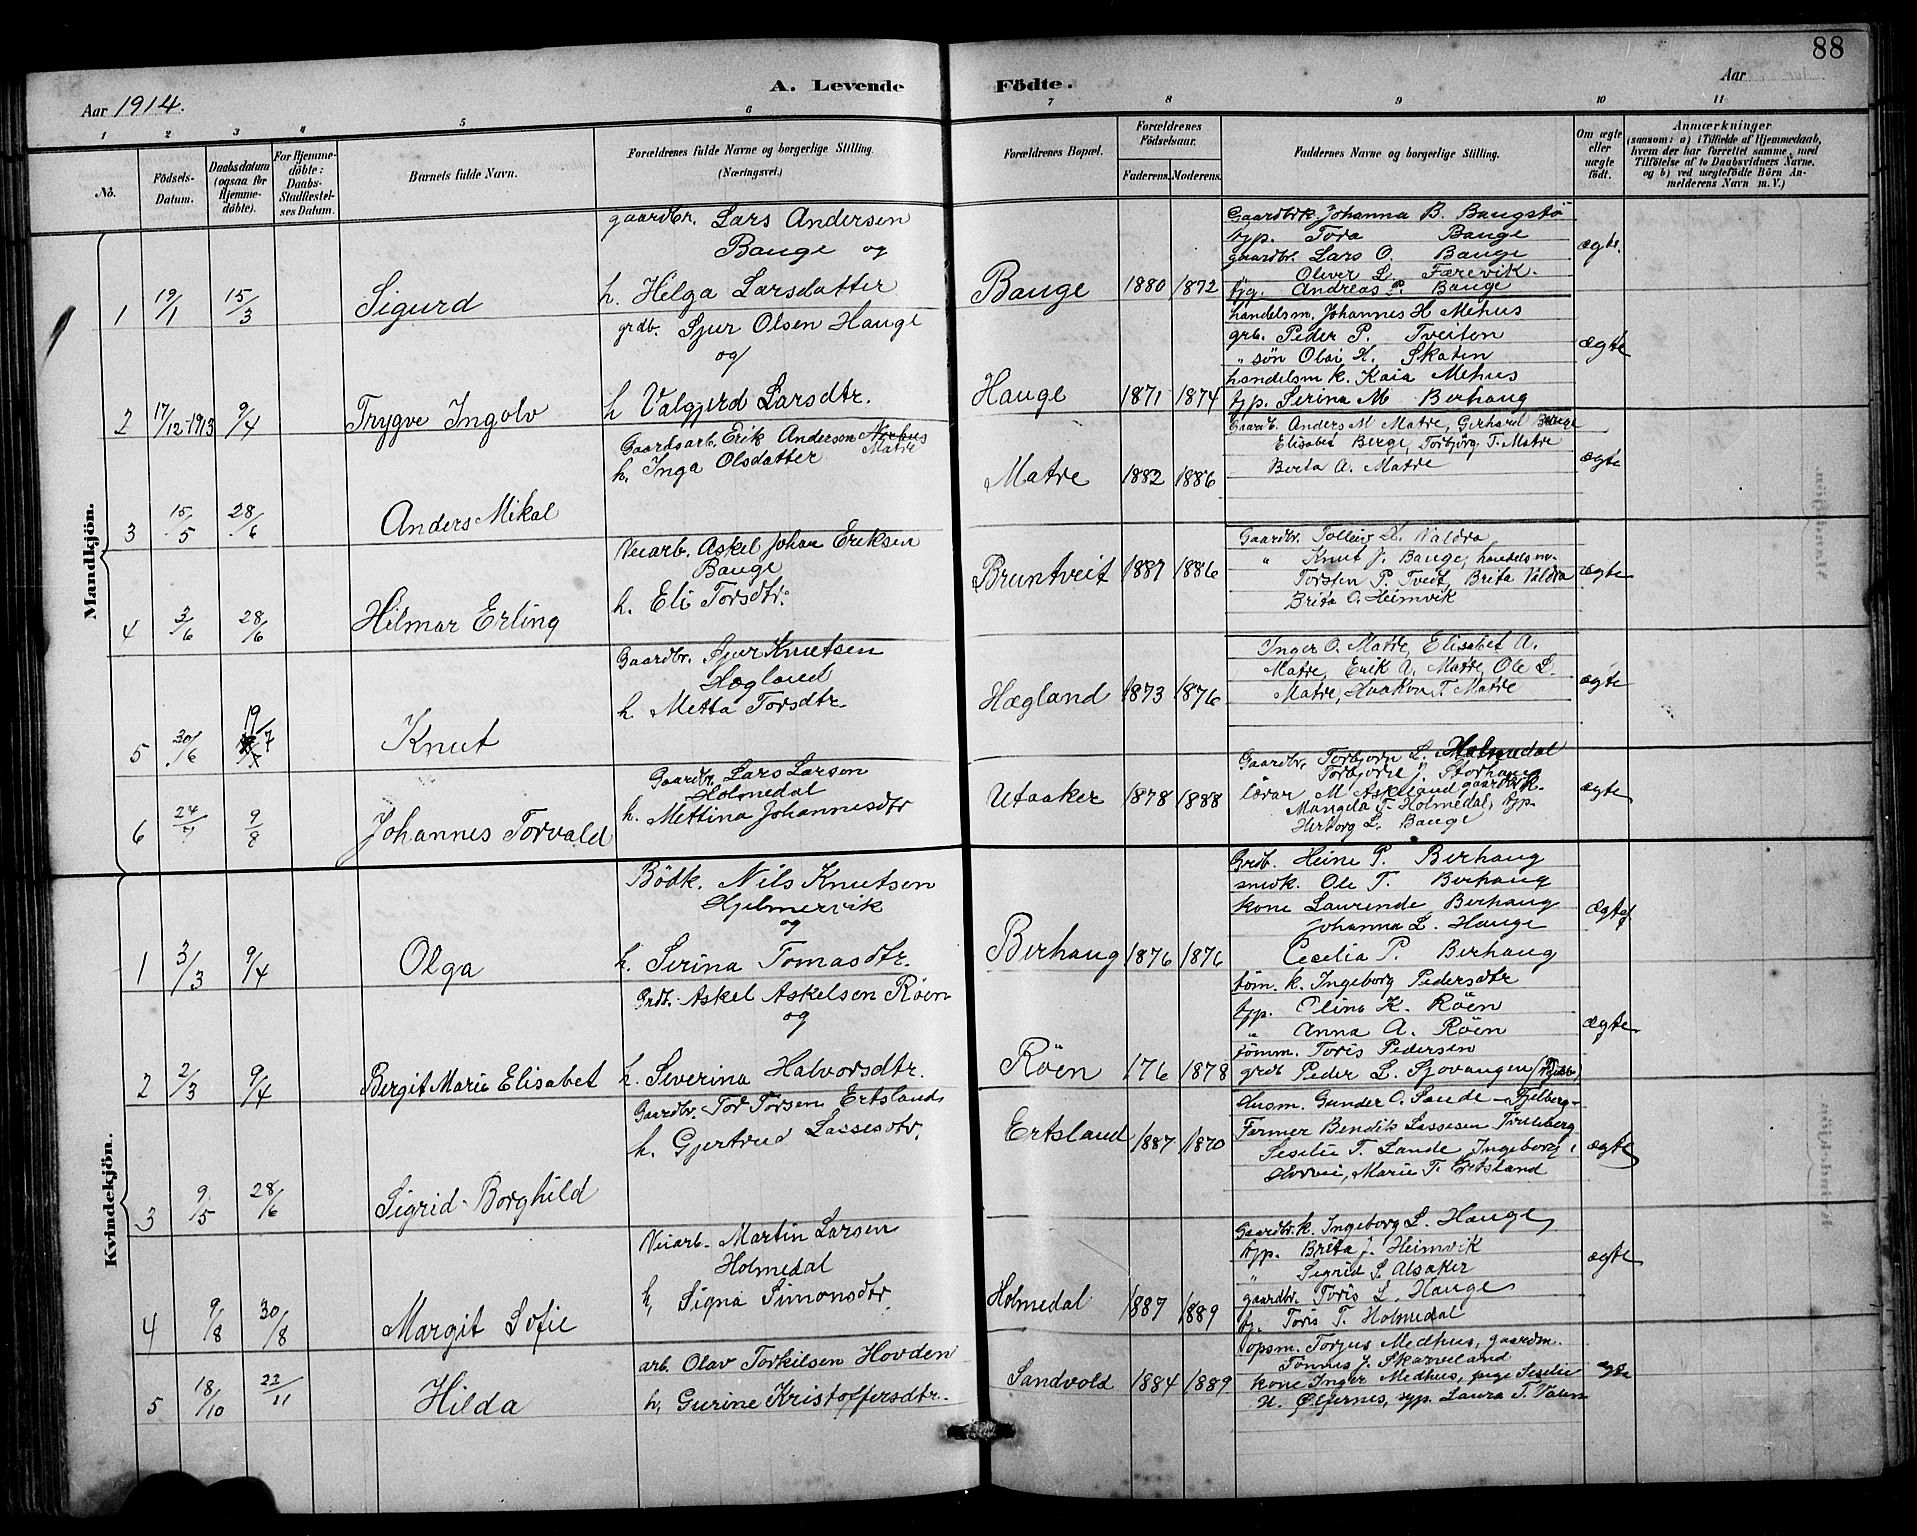 88
A. Levende Födte.
Aar 1914.
Aar
1 2 3 4 5 6 7 8 9 10 11
No.
Födsels-Datum.
Daabsdatum (ogsaa for Hjemmedöbte).
For Hjemmedöbte: Daabs-Stadfæstelses Datum.
Barnets fulde Navn.
Forældrenes fulde Navne og borgerlige Stilling.
(Næringsvei.)
Forældrenes Bopæl.
Forældrenes Födselsaar.
Faderens. Moderens.
Faddernes Navne og borgerlige Stilling.
Om ægte eller uægte födt.
Anmærkninger
(saasom: a) i Tilfælde af Hjemmedaab,
hvem der har forrettet samme, med
Tilföielse af to Daabsvidners Navne.
og b) ved uægtefödte Börn Anmelderens Navn m. V.)
Mandkjön.
1 19/1 15/3 Sigurd
gaardbr. Lars Andersen
Bauge og
h. Helga Larsdatter
Bauge 1880 1872
Gaardbrk. Johanna B. Baugstø
tjp. Tora Bauge
gaardbr. Lars O. Bauge
" Oliver L. Færevik.
tjg. Andreas P. Bauge
ægte.
2 17/12-1913 9/4 Trygve Ingolv
grdb. Sjur Olsen Hauge
og
h Valgjerd Larsdtr.
Hauge 1871 1874
handelsm. Johannes H Mehus
grb. Peder P. Tveiton
" søn Olai H. Skaten
handelsm k. Kaia Mehus
tjp. Serina M Berhaug
ægte
3 15/5 28/6 Anders Mikal
Gaardsarb. Erik Andersen Nerhus
Matre
h. Inga Olsdatter
Matre 1882 1886
Gaardb. Anders M Matre, Gerhard Berge
Elisabet Berge, Torbjörg T. Matre
Berta A. Matre
ægte
4 3/6 28/6 Hilmar Erling
Veiarb. Askel Johan Eriksen
Bauge
h. Eli Torsdtr.
Bruntveit 1887 1886
Gaardbr. Tolleiv L. Valdra
" Knut J. Bauge, handelsm.
Torsten P. Tveit, Brita Valdra
Brita O. Heimvik
ægte
5 30/6 19/7 Knut
Gaardbr. Sjur Knutsen
Hægland
h Metta Torsdtr.
Hægland 1873 1876
Inger O. Matre, Elisabet A.
Matre, Erik A. Matre, Ole L.
Matre, Haakon T. Matre
ægte
6 24/7 9/8 Johannes Torvald
Gaardbr. Lars Larsen
Holmedal
h. Mettina Johannesdtr
Utaaker 1878 1888
Gaardbr. Torbjorn L. Holmedal
Torbjorn J. Storhaug
lærar M. Askeland, gaardbrk.
Mangela T. Holmedal, tjp.
Herborg L. Bauge
ægte
Kvindekjön.
1 3/3 9/4 Olga
Bödk. Nils Knutsen
Hjelmervik
og
h. Serina Tomasdtr.
Berhaug 1876 1876
Grdb. Heine P. Berhaug
snedk. Ole T. Berhaug
kone Laurende Berhaug
Johanna L. Hauge
Cecelia P. Berhaug
ægte
2 2/3 9/4 Bergit Marie Elisabet
Grdb. Askel Askelsen Röen
og
h. Severina Halvorsdtr.
Röen 176 1878
töm. k. Ingeborg Pedersdtr
tjp. Elina K. Röen
" Anna A. Röen
tömm. Toris Pedersen
grdb Peder L. Sjovangen
ægte
3 9/5 28/6 Sigrid Borghild
Gaardbr. Tor Torsen Ertsland
h. Gjertrud Lassesdtr.
Ertsland 1887 1870
Husm. Gunder O. Sande - Fjelberg -
Farmer Bendik Lassesen Truleberg
Seselie T. Lande, Ingeborg
Marie T. Ertsland
ægte
4 9/8 30/8 Margit Sofie
Veiarb. Martin Larsen
Holmedal
h, Signa Simonsdtr.
Holmedal 1887 1889
Gaardbr. k. Ingeborg L. Hauge,
tjp. Brita J. Heimvik
" Sigrid S. Alsaker
gaardbr. Toris L. Hauge
tj. Toris T. Holmedal
ægte
5 18/10 22/11 Hilda
arb. Olav Torkilsen Hovden
h, Gurine Kristoffersdtr.
Sandvold 1884 1889
opsm. Torjus Medhus, gaardm.
Tönnes J. Skarveland
kone Inger Medhus, Seselie
H. Ølfernes, syp. Laura T. Valen
ægte